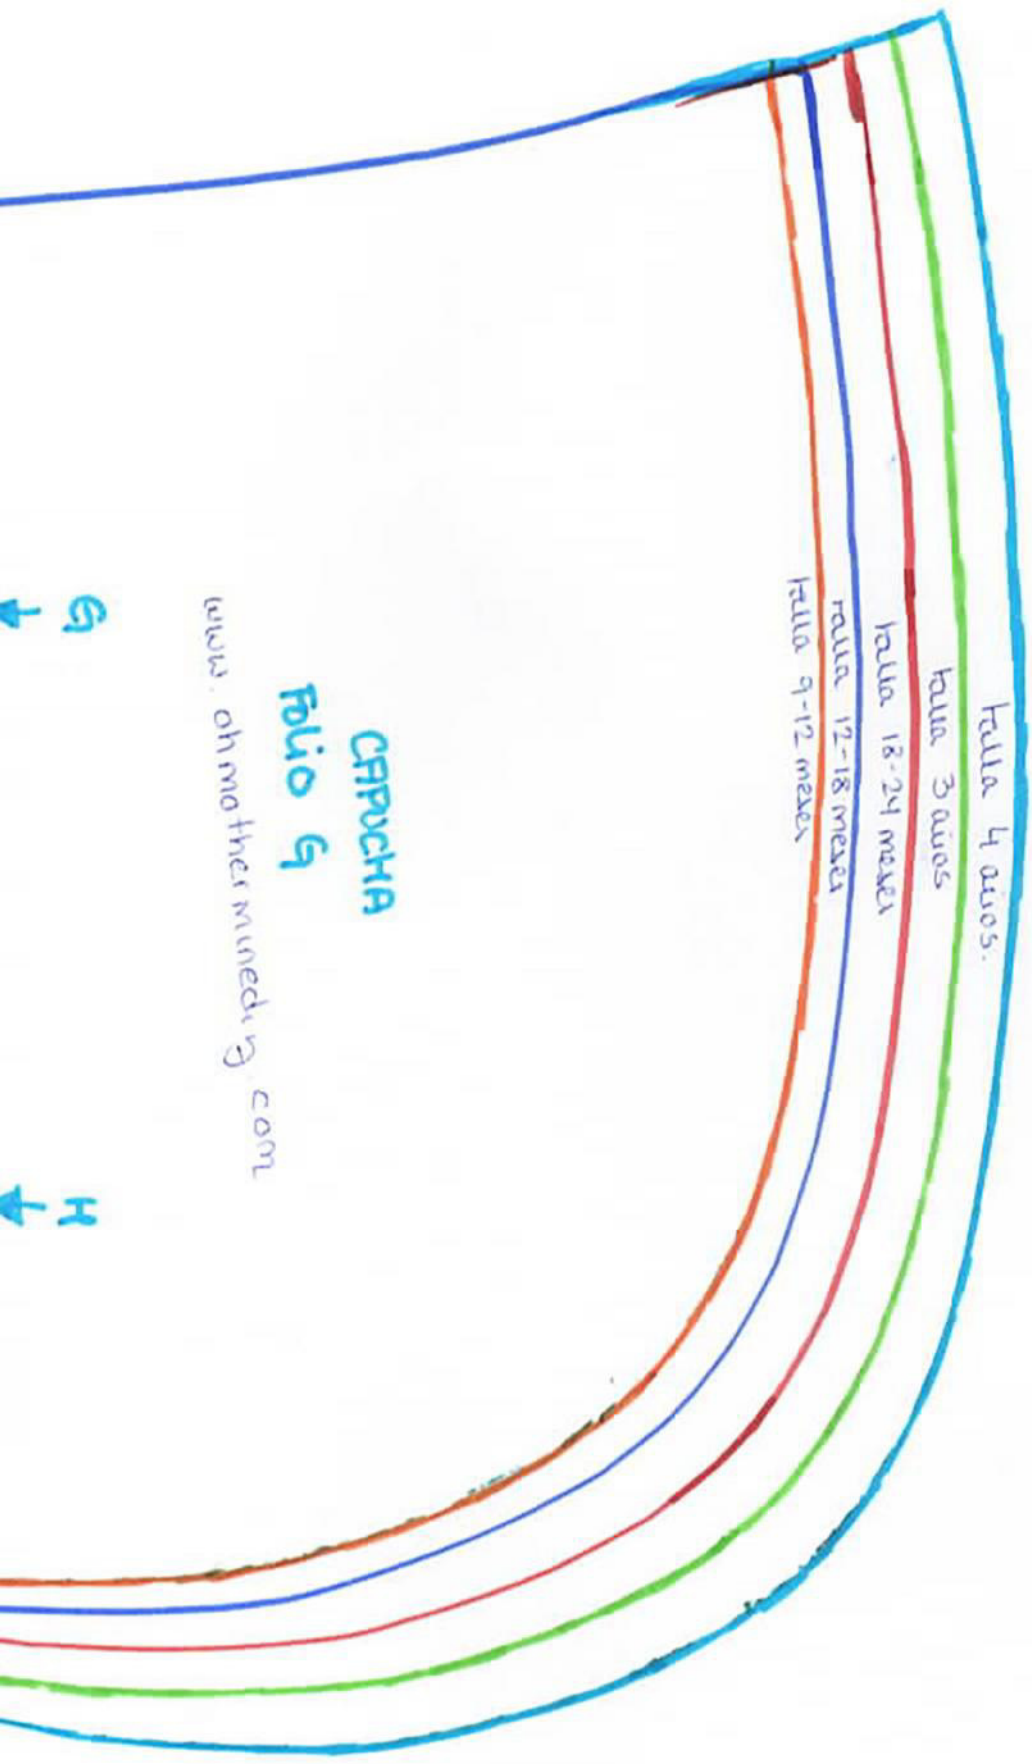 talla 4 años.
talla 3 años
talla 18-24 meses
talla 12-18 meses
talla 9-12 meses
CAPUCHA
Folio G
www.ohmotherminediy.com
G
H